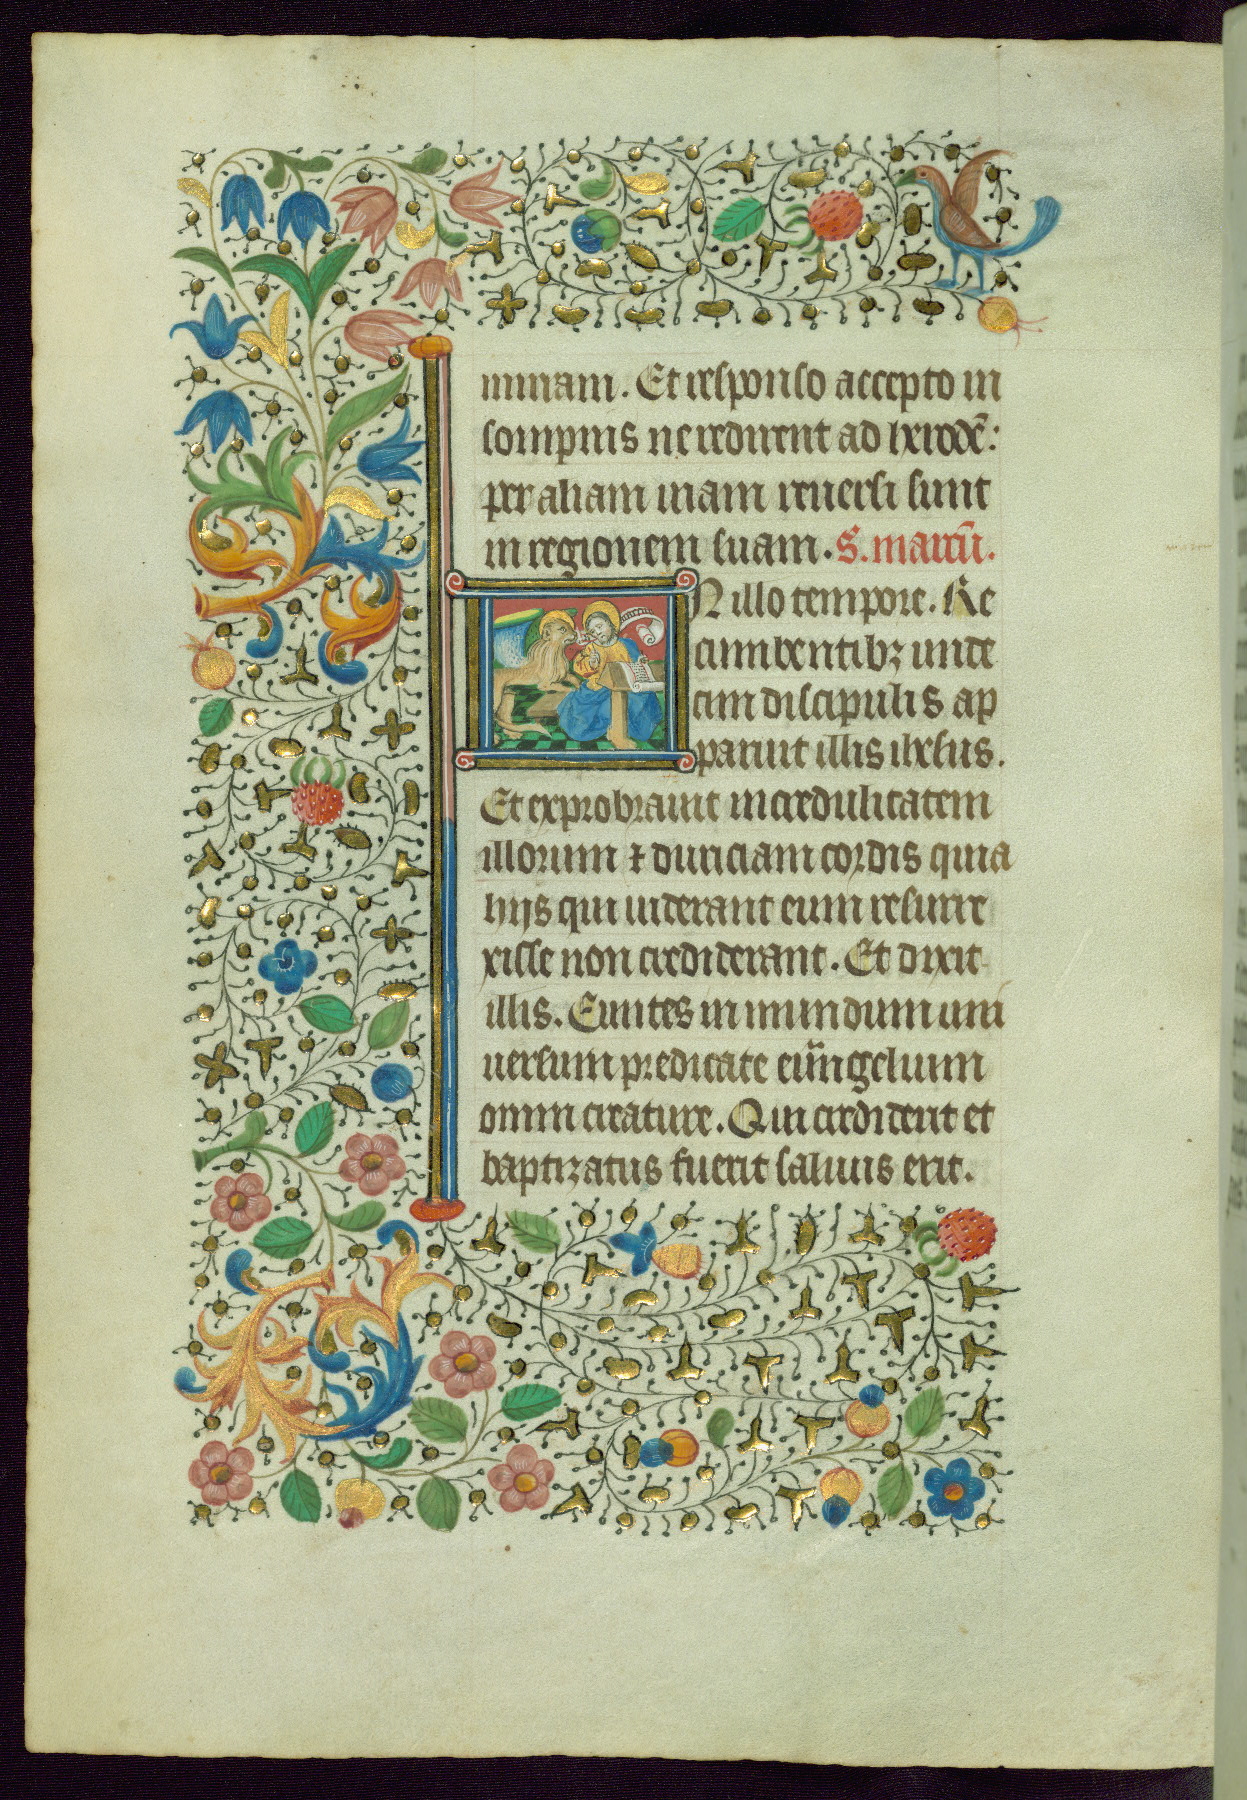 mirram. Et responso accepto in
sompnis ne redirent ad herodē:
per aliam uiam reuersi sunt
in regionem suam. S. marcū.
N illo tempore. Re
cumbentibꝫ unde
cim discipulis ap
paruit illis ihesus.
Et exprobrauit incredulitatem
illorum ⁊ duriciam cordis quia
hijs qui uiderant eum resurre
xisse non crediderant. Et dixit
illis. Euntes in mundum uni
uersum predicate euūngelium
omni creature. Qui crediderit et
baptizatus fuerit saluus erit.